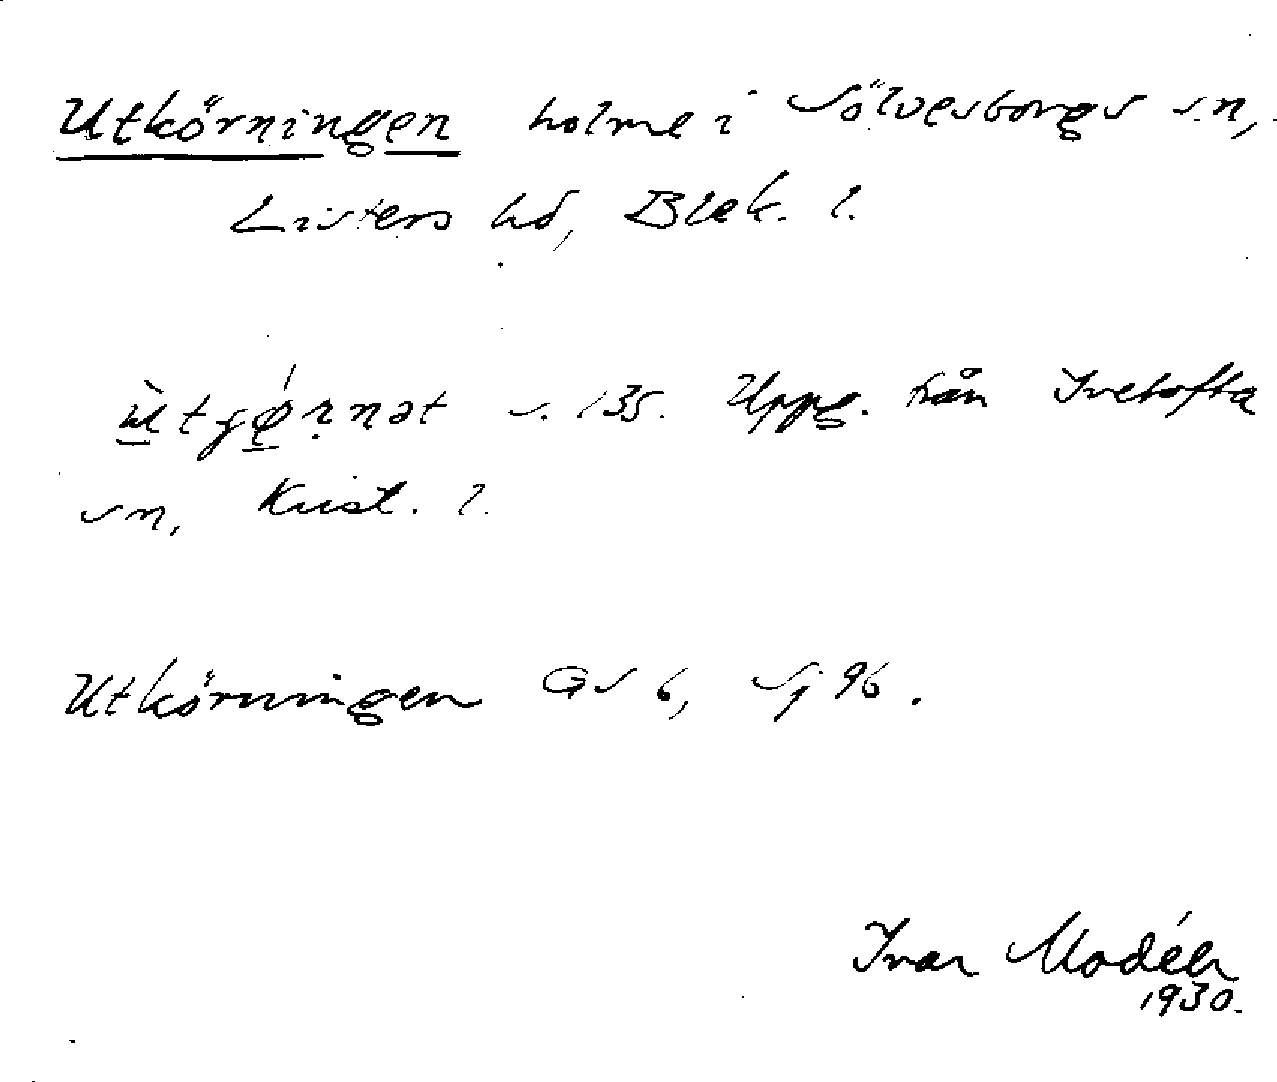 Utkörningen holme i Sölvesborgs sn,
Listers hd, Blek. l.
s. 135. Uppg. från Ivetofta
sn, Krist. l.
Utkörningen GS 6, Sj 96.
Ivar Modéer
1930.